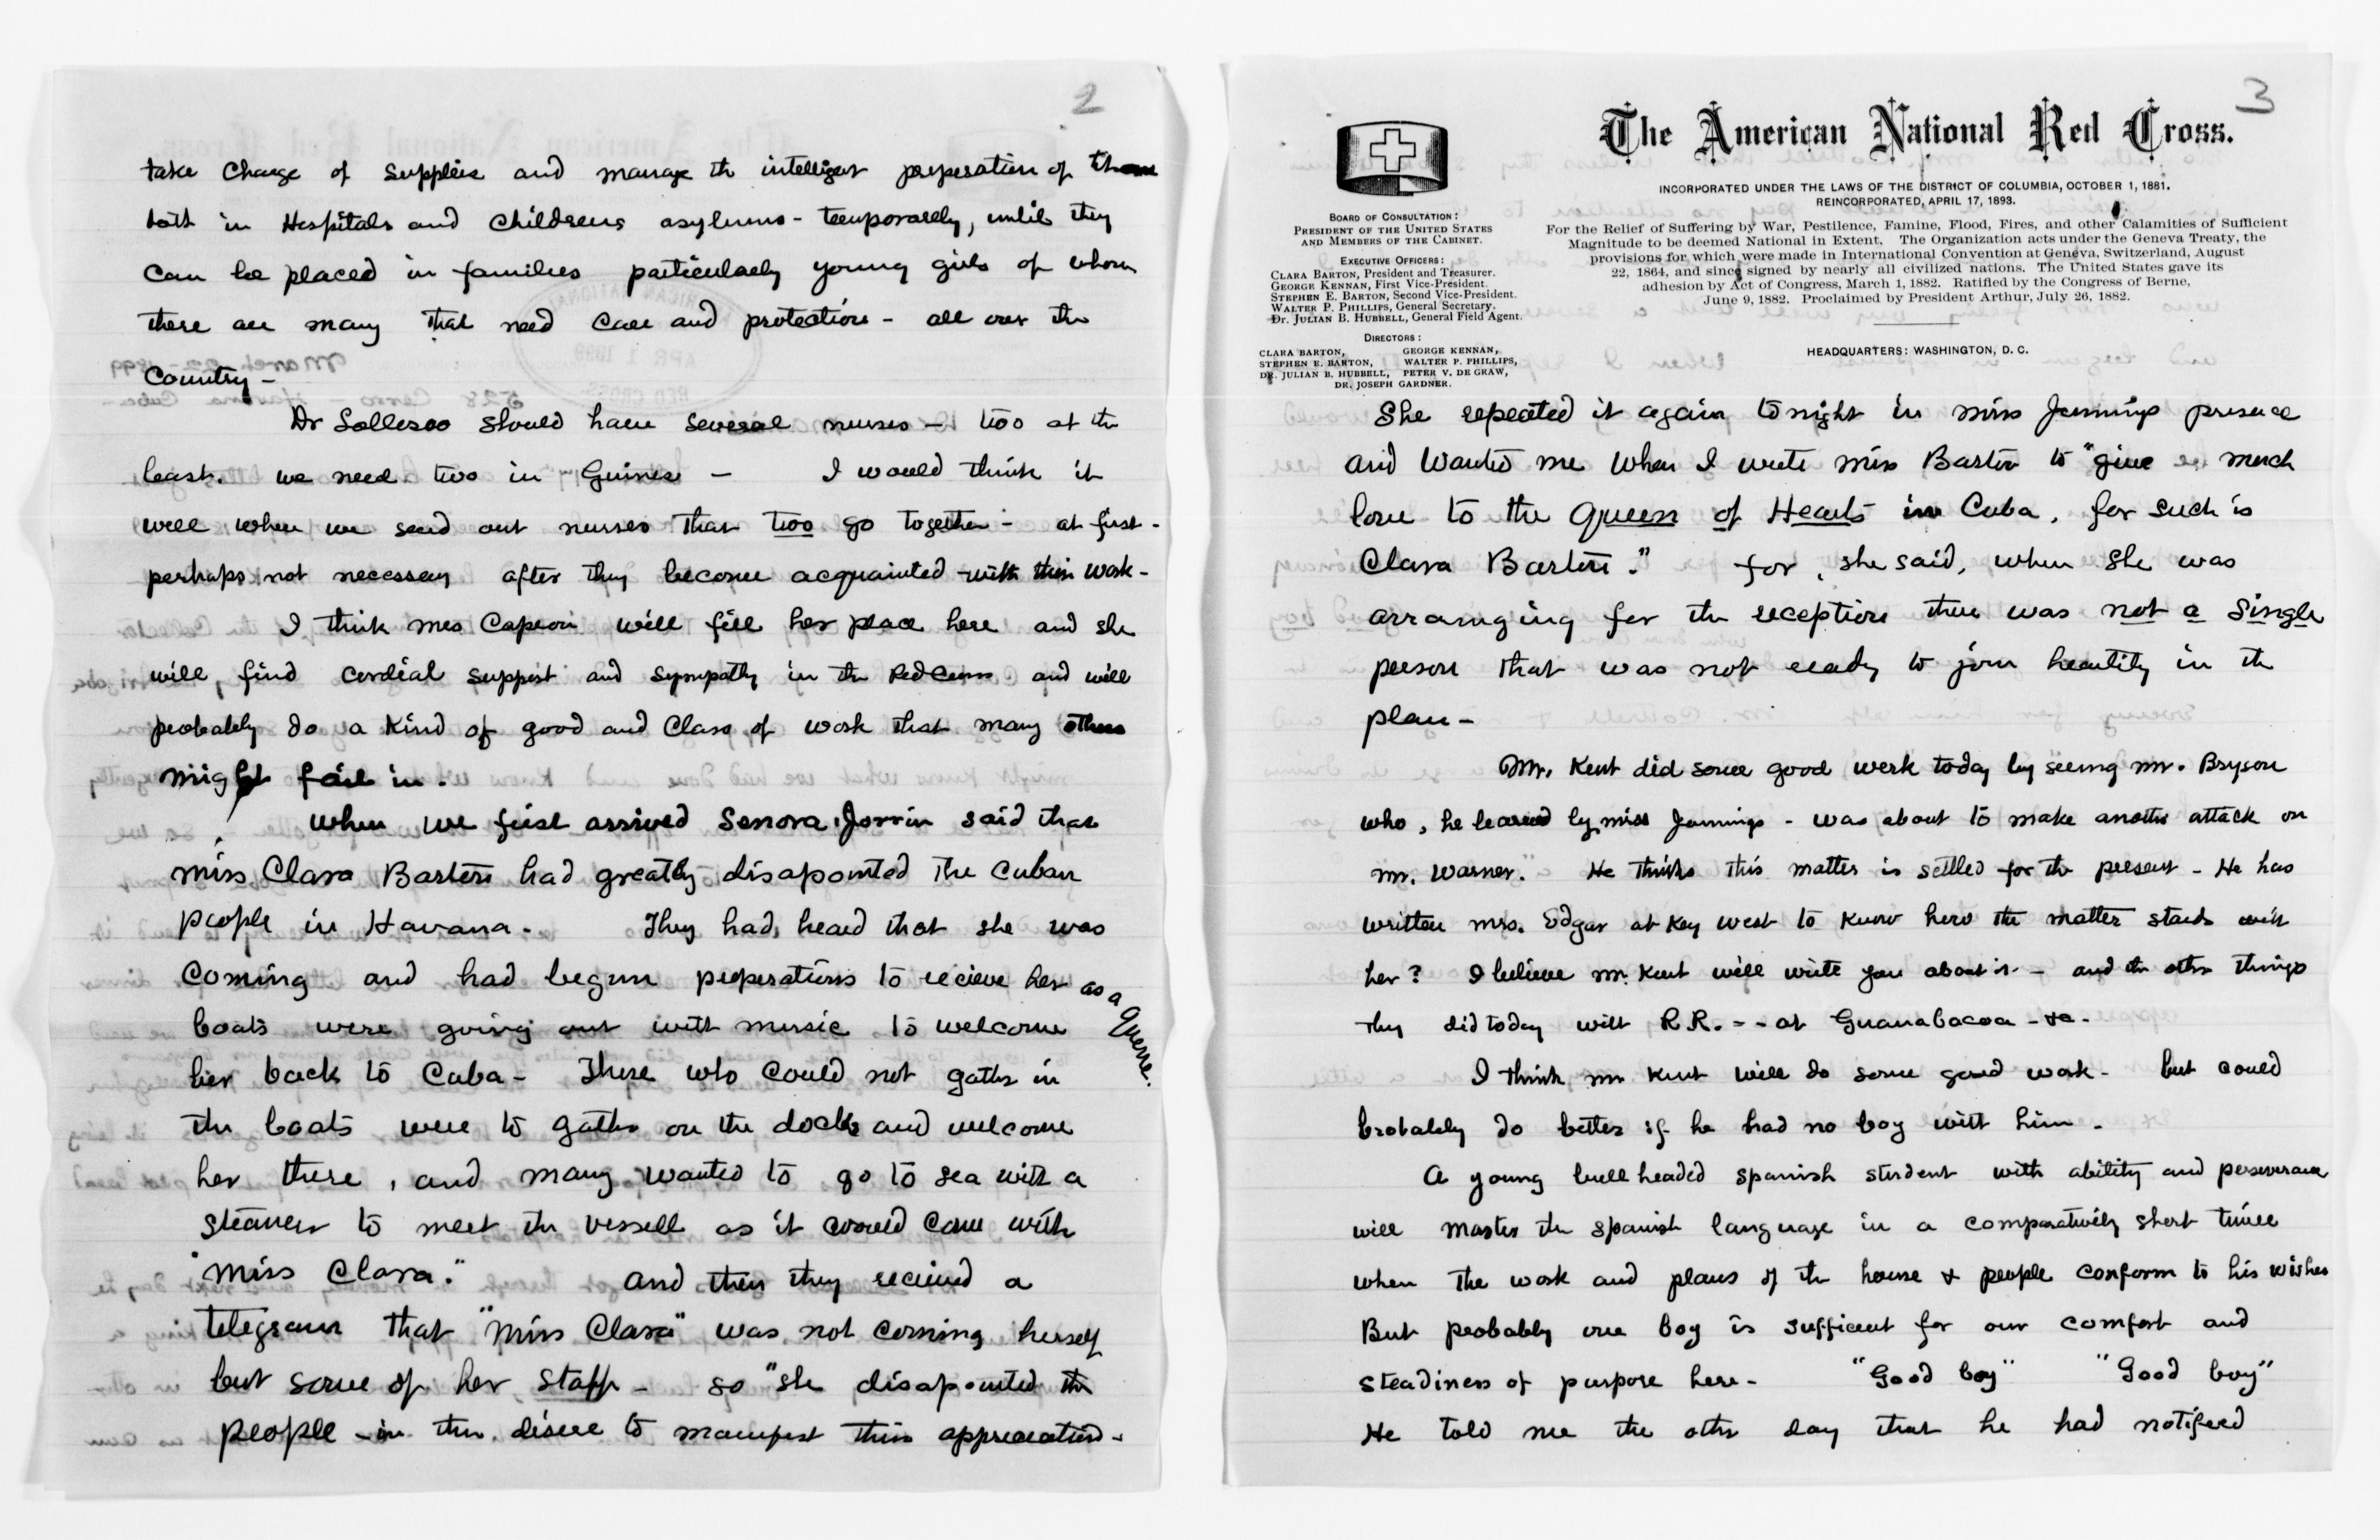 2
take Charge of Supplies and manage th intelligent preperation of them
both in Hospitals and Childrens asylums - temporarely, until they
Can be placed in families particularly young girls of whom
there are many that need Care and protection - all over the
Country -
Dr Sollesso should have several nurses - two at the
least. we need two in Guines - I would think it
well when we send out nurses that two go together - at first -
perhaps not necessary after they become acquainted with their work -
I think mrs Capron will fill her place here and she
will find cordial support and sympathy in the Red Cross and will
probably do a Kind of good and Class of work that many others
might fail in.
When we first arrived Senora Jorrin said that
miss Clara Barton had greatly disapointed the Cuban
people in Havana - They had heard that she was
Coming and had begun preperations to recieve her as a Queene.
boats were going out with music to welcome
her back to Cuba - Those who could not gather in
the boats were to gather on the docks and welcome
her there, and many wanted to go to sea with a
steamer to meet the vessell as it would come with
"Miss Clara." and then they recieved a
telegram that "Miss Clara" was not coming herself
but some of her staff - so "she disapointed the
people - in the desire to manifest their appreciation -
3
The American National Red Cross.
INCORPORATED UNDER THE LAWS OF THE DISTRICT OF COLUMBIA, OCTOBER 1, 1881.
REINCORPORATED, APRIL 17, 1893.
For the Relief of Suffering by War, Pestilence, Famine, Flood, Fires, and other Calamities of Sufficient
Magnitude to be deemed National in Extent. The Organization acts under the Geneva Treaty, the
provisions for which were made in International Convention at Geneva, Switzerland, August
22, 1864, and since signed by nearly all civilized nations. The United States gave its
adhesion by Act of Congress, March 1, 1882. Ratified by the Congress of Berne,
June 9, 1882. Proclaimed by President Arthur, July 26, 1882.
HEADQUARTERS: WASHINGTON, D. C.
BOARD OF CONSULTATION:
PRESIDENT OF THE UNITED STATES
AND MEMBERS OF THE CABINET.
EXECUTIVE OFFICERS:
CLARA BARTON, President and Treasurer.
GEORGE KENNAN, First Vice-President.
STEPHEN E. BARTON, Second Vice-President.
WALTER P. PHILLIPS, General Secretary.
DR. JULIAN B. HUBBELL, General Field Agent.
DIRECTORS:
CLARA BARTON, GEORGE KENNAN,
STEPHEN E. BARTON, WALTER P. PHILLIPS,
DR. JULIAN B. HUBBELL, PETER V. DE GRAW,
DR. JOSEPH GARDNER.
She repeated it again tonight in miss Jennings presence
and Wanted me when I wrote miss Barton to "give much
love to the Queen of Hearts in Cuba, for such is
Clara Barton." for, she said, when she was
arranging for the reception there was not a single
person that was not ready to join heartily in the
plan -
Mr. Kent did some good work today by seeing mr. Bryson
who, he learned by miss Jennings - was about to make another attack on
mr. Warner. He thinks this matter is settled for the present - He has
written mrs. Edgar at Key West to know how the matter stands with
her? I believe mr. Kent will write you about it - and the other things
they did today with R.R. - - at Guanabacoa - &c -
I think mr Kent will do some good work - but could
probably do better if he had no boy with him -
A young bull headed spanish student with ability and perseverance
will master the spanish language in a comparatively short time
when the work and plans of the house & people conform to his wishes
But probably one boy is sufficient for our comfort and
steadiness of purpose here - "Good boy" "Good boy"
He told me the other day that he had notifeed